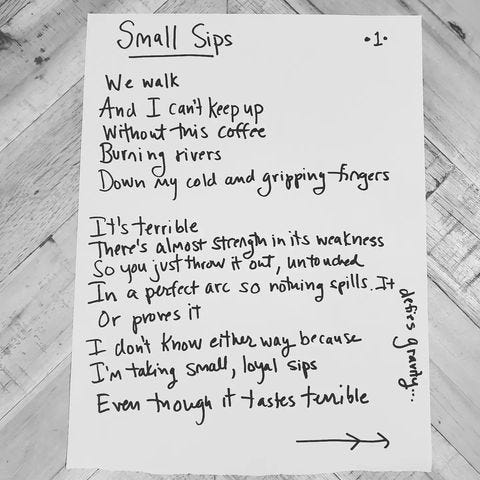 Small Sips
•1•
We walk
And I can't keep up
Without this coffee
Burning rivers
Down my cold and gripping fingers
It's terrible
There's almost strength in its weakness
So you just throw it out, untouched
In a perfect arc so nothing spills. It
defies gravity...
Or proves it
I don't know either way because
I'm taking small, loyal sips
Even though it tastes terrible